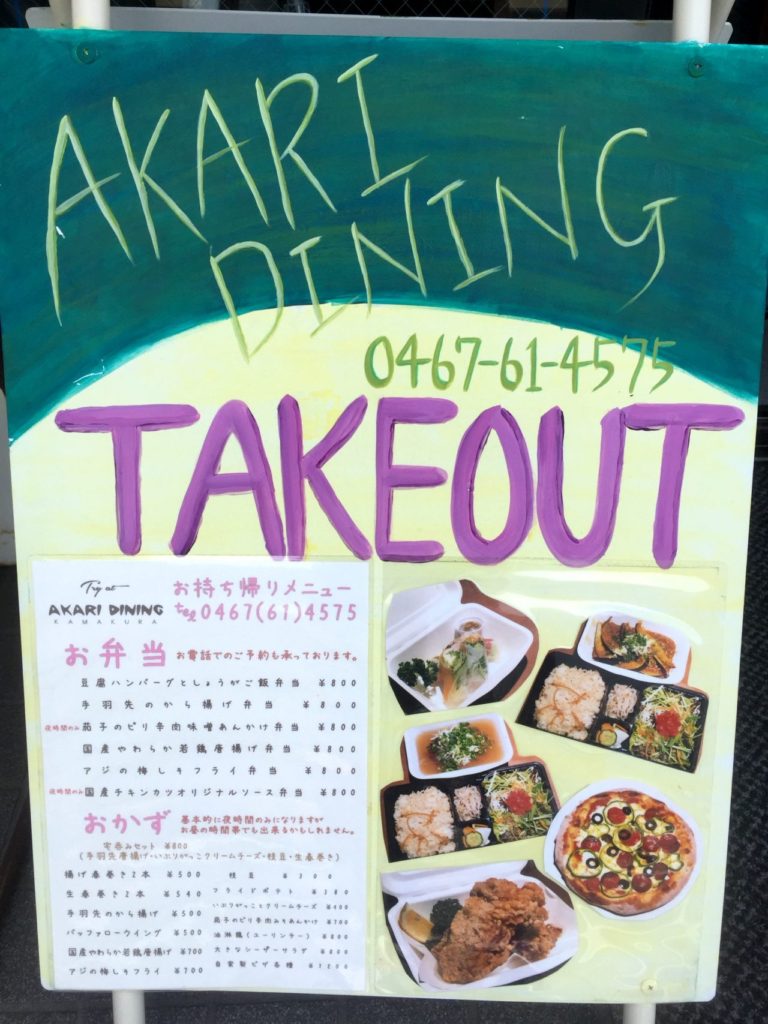 AKARI
DINING
0467-61-4575
TAKEOUT
Try at
AKARI DINING
KAMAKURA
お持ち帰りメニュー
tel 0467(61)4575
お弁当 お電話でのご予約も承っております。
豆腐ハンバーグとしょうがご飯弁当 ¥800
手羽先のから揚げ弁当 ¥800
夜時間のみ 茄子のピリ辛肉味噌あんかけ弁当 ¥800
国産やわらか若鶏唐揚げ弁当 ¥800
アジの梅しそフライ弁当 ¥800
夜時間のみ 国産チキンカツオリジナルソース弁当 ¥800
おかず 基本的に夜時間のみになりますが
お昼の時間帯でも出来るかもしれません。
宅呑みセット ¥800
(手羽先唐揚げ・いぶりがっこクリームチーズ・枝豆・生春巻き)
揚げ春巻き2本 ¥500
生春巻き2本 ¥540
手羽先のから揚げ ¥500
バッファローウイング ¥500
国産やわらか若鶏唐揚げ ¥700
アジの梅しそフライ ¥700
枝豆 ¥300
フライドポテト ¥380
いぶりがっことクリームチーズ ¥400
茄子のピリ辛肉みそあんかけ ¥700
油淋鶏(ユーリンチー) ¥800
大きなシーザーサラダ ¥800
自家製ピザ各種 ¥1200